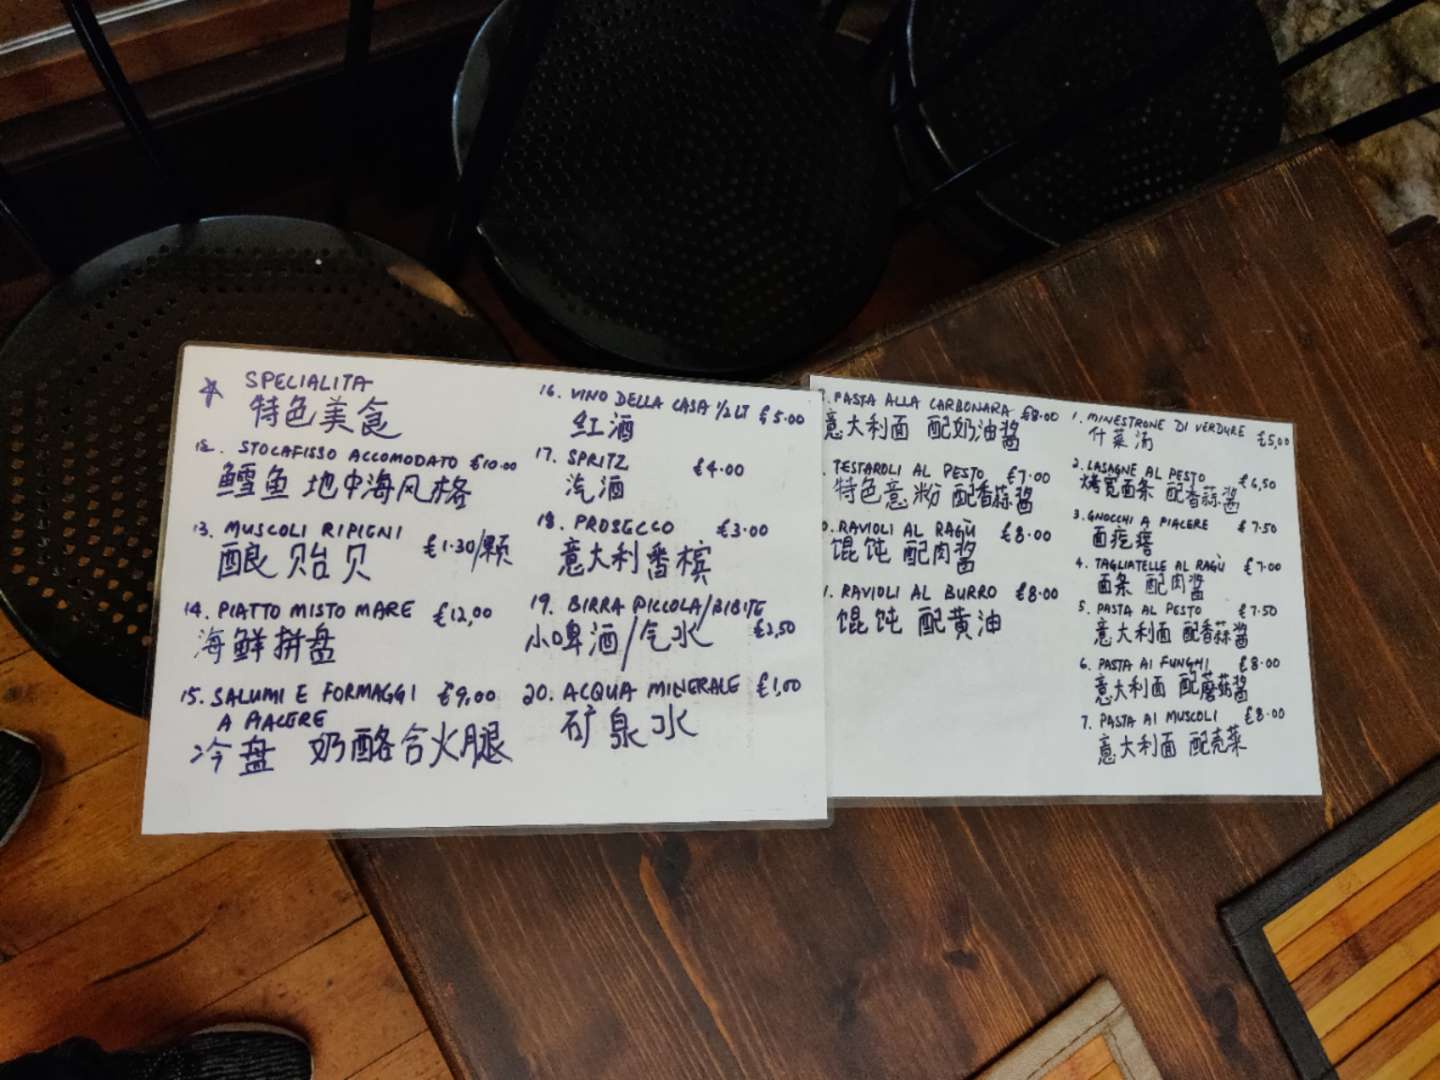 SPECIALITA
特色美食
12. STOCAFISSO ACCOMODATO €10.00
鳕鱼 地中海风格
13. MUSCOLI RIPIENI €1.30/颗
酿 贻贝
14. PIATTO MISTO MARE €12,00
海鲜拼盘
15. SALUMI E FORMAGGI €9,00
A PIACERE
冷盘 奶酪合火腿
16. VINO DELLA CASA 1/2 LT €5.00
红酒
17. SPRITZ €4.00
汽酒
18. PROSECCO €3.00
意大利香槟
19. BIRRA PICCOLA/BIBITE
小啤酒/气水 €2,50
20. ACQUA MINERALE €1,00
矿泉水
PASTA ALLA CARBONARA €8.00
意大利面 配奶油酱
TESTAROLI AL PESTO €7.00
特色意粉 配香蒜酱
RAVIOLI AL RAGÙ €8.00
馄饨 配肉酱
RAVIOLI AL BURRO €8.00
馄饨 配黄油
1. MINESTRONE DI VERDURE €5,00
什菜汤
2. LASAGNE AL PESTO €6,50
烤宽面条 配香蒜酱
3. GNOCCHI A PIACERE €7.50
面疙瘩
4. TAGLIATELLE AL RAGÙ €7.00
面条 配肉酱
5. PASTA AL PESTO €7.50
意大利面 配香蒜酱
6. PASTA AI FUNGHI €8.00
意大利面 配蘑菇酱
7. PASTA AI MUSCOLI €8.00
意大利面 配壳菜